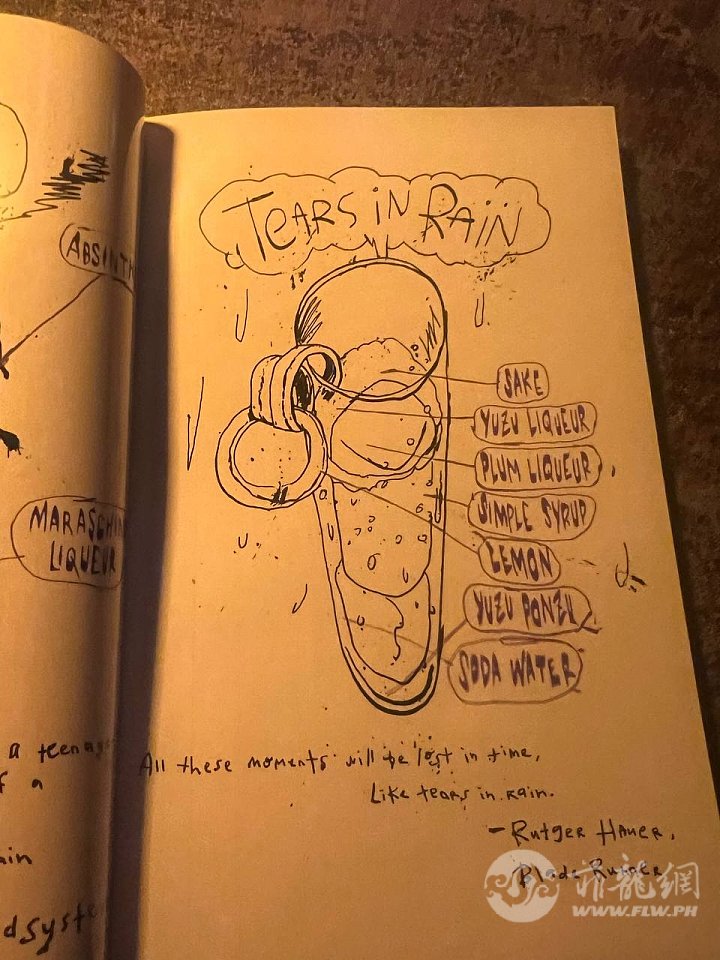 ABSINT
MARASCHI
LIQUEUR
a teenage
f a
ain
dsyste
TEARS IN RAIN
SAKE
YUZU LIQUEUR
PLUM LIQUEUR
SIMPLE SYRUP
LEMON
YUZU PONZU
SODA WATER
All these moments will be lost in time,
Like tears in rain.
- Rutger Hauer,
Blade Runner
菲龍網
WWW.FLW.PH